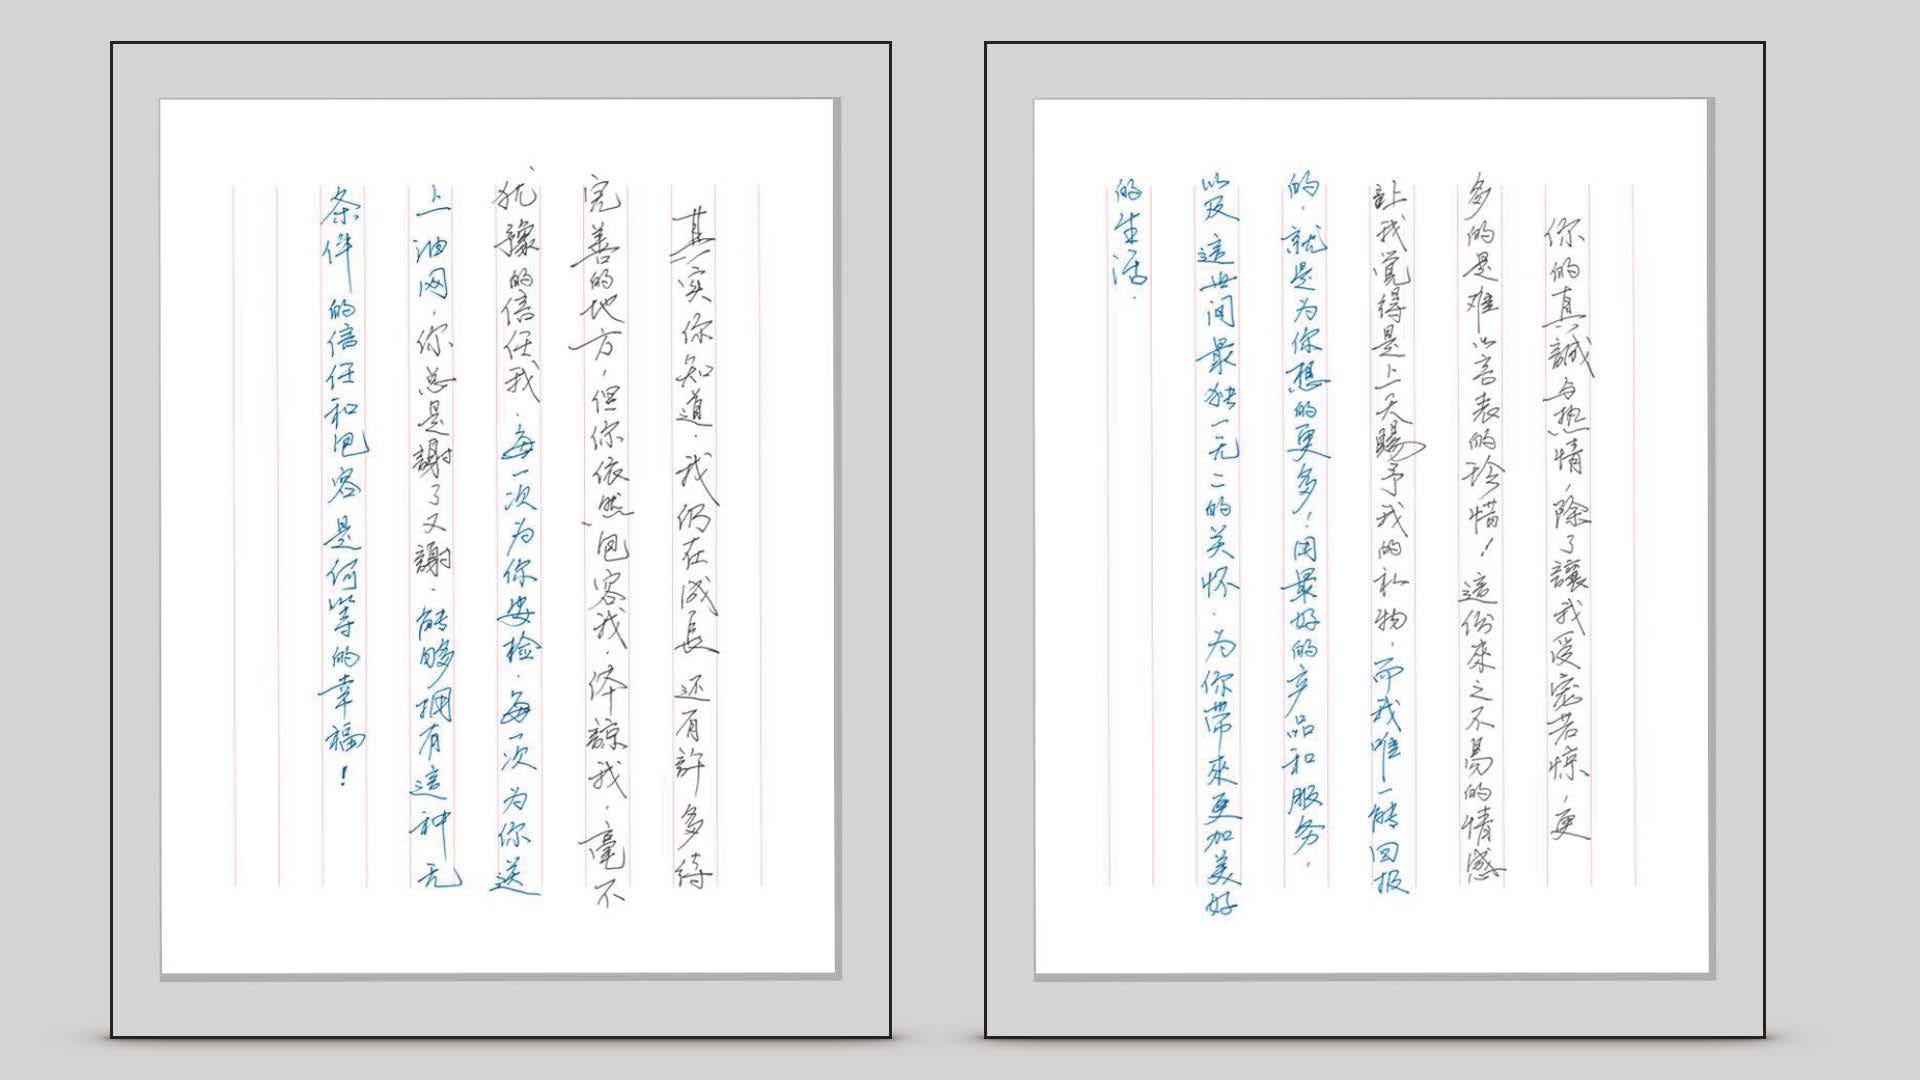 你的真誠与热情，除了讓我受宠若惊，更
多的是难以言表的珍惜！這份來之不易的情感
让我觉得是上天賜予我的私物，而我唯一能回报
的，就是为你想的更多！用最好的产品和服务，
以及這世间最独一无二的关怀，为你带來更加美好
的生活．
其实你知道，我仍在成長 还有許多待
完善的地方，但你依然包容我，体諒我，毫不
犹豫的信任我，每一次为你安检，每一次为你送
上油网，你总是謝了又謝，能够拥有這种无
条件的信任和包容是何等的幸福！